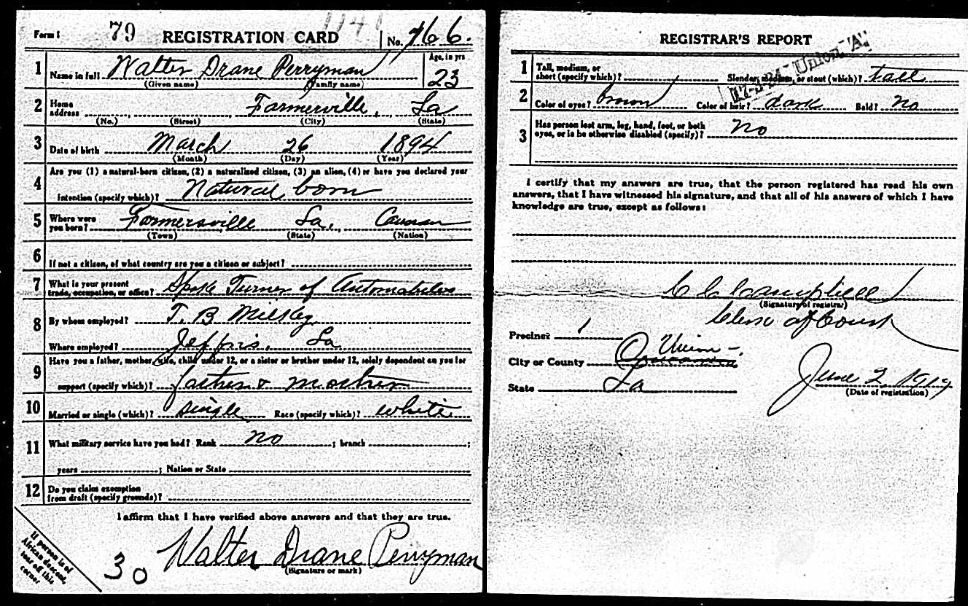 Form 1 79 REGISTRATION CARD No. 766.
1 Name in full Walter Drane Perryman Age, in yrs 23
(Given name) (Family name)
2 Home address Farmerville, La
(No.) (Street) (City) (State)
3 Date of birth March 26 1894
(Month) (Day) (Year)
4 Are you (1) a natural-born citizen, (2) a naturalized citizen, (3) an alien, (4) or have you declared your
intention (specify which)? Natural born
5 Where were you born? Farmersville La,
(Town) (State) (Nation)
6 If not a citizen, of what country are you a citizen or subject?
7 What is your present trade, occupation, or office? Spoke Turner of Automobiles
8 By whom employed? T. B
Where employed? La
9 Have you a father, mother, wife, child under 12, or a sister or brother under 12, solely dependent on you for
support (specify which)? father & mother
10 Married or single (which)? single Race (specify which)? white
11 What military service have you had? Rank no ; branch ;
years ; Nation or State
12 Do you claim exemption from draft (specify grounds)?
I affirm that I have verified above answers and that they are true.
30 Walter Drane Perryman
(Signature or mark)
If person is of African descent, tear off this corner
REGISTRAR'S REPORT
Union "A"
1 Tall, medium, or short (specify which)? Slender, medium, or stout (which)? tall
2 Color of eyes? brown Color of hair? dark Bald? No
3 Has person lost arm, leg, hand, foot, or both eyes, or is he otherwise disabled (specify)? No
I certify that my answers are true, that the person registered has read his own
answers, that I have witnessed his signature, and that all of his answers of which I have
knowledge are true, except as follows:
C C Campbell
(Signature of registrar)
Clerk of Court
Precinct 1
City or County Union
State La
June 2, 1917
(Date of registration)